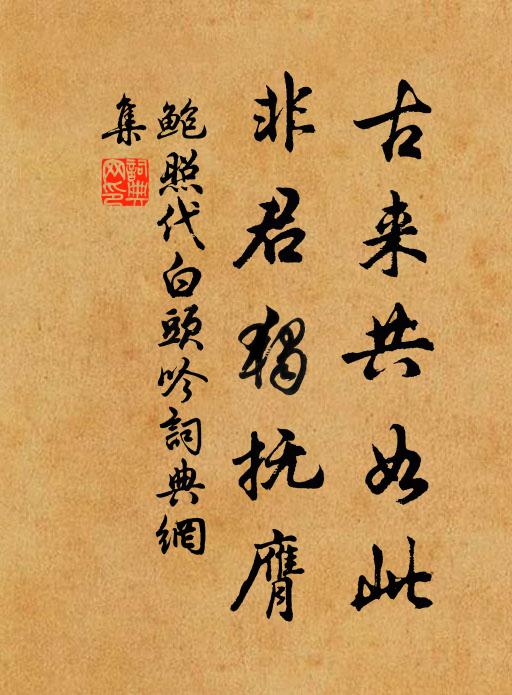 古来共如此
非君独抚膺
鲍照代白頭吟詞典網
集
詞典
网印